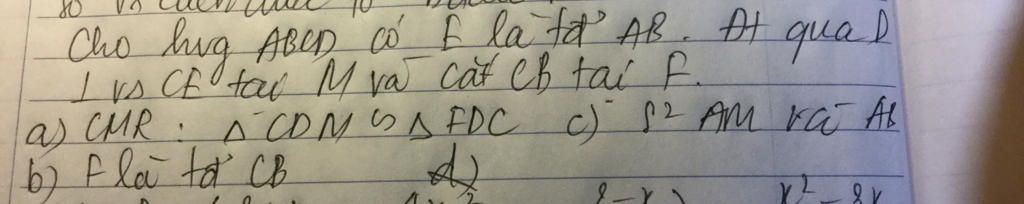 Cho hvg ABCD có E là tđ AB. Đt qua D
⊥ vs CE tại M và cắt CB tại F.
a) CMR: Δ CDM ∽ Δ FDC c) s² AM và AB
b) F là tđ CB d)
8-x) x² - 8x